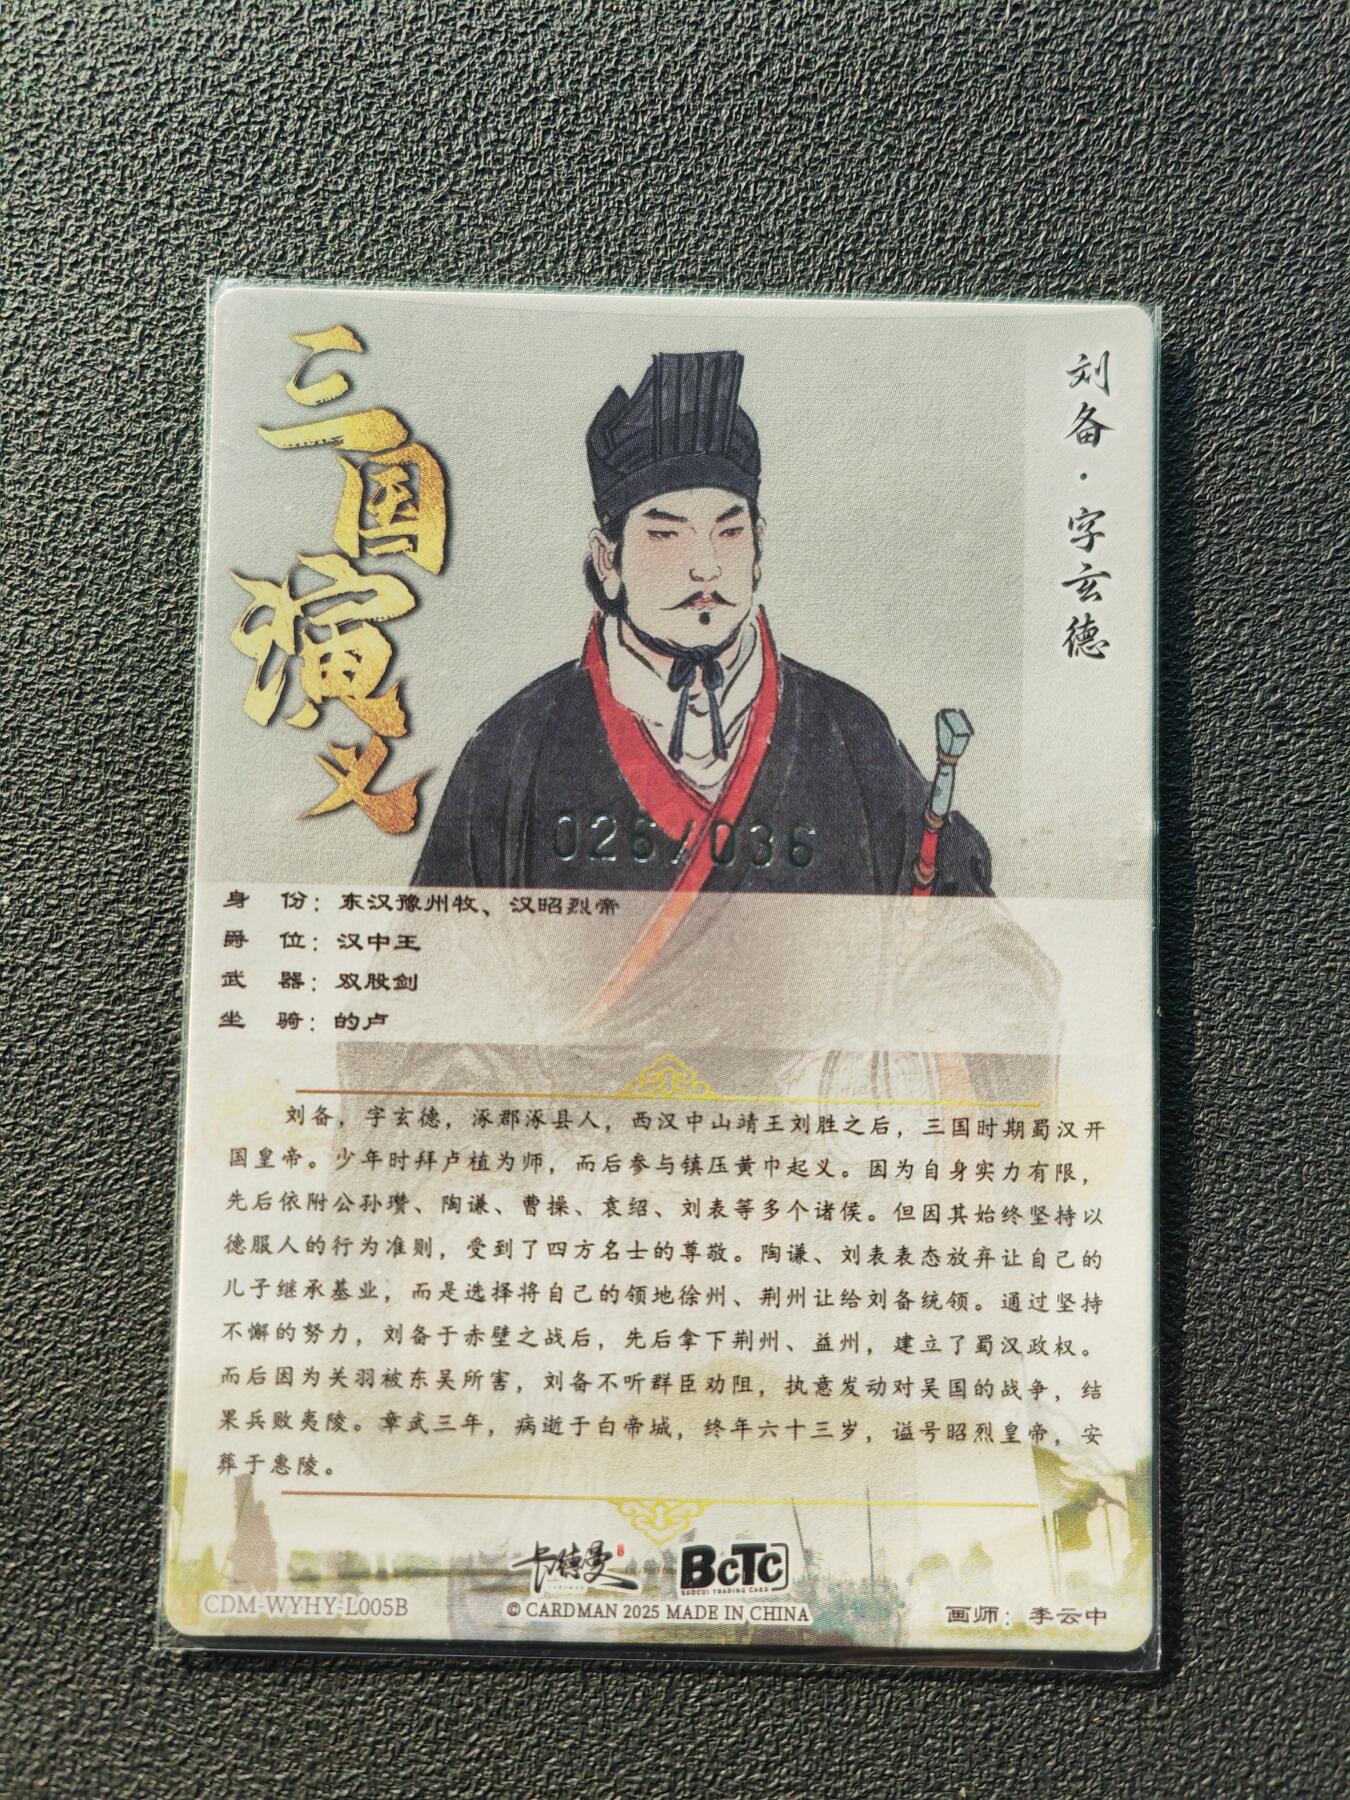 三国演义
刘备·字玄德
026/036
身 份：东汉豫州牧、汉昭烈帝
爵 位：汉中王
武 器：双股剑
坐 骑：的卢
刘备，字玄德，涿郡涿县人，西汉中山靖王刘胜之后，三国时期蜀汉开
国皇帝。少年时拜卢植为师，而后参与镇压黄巾起义。因为自身实力有限，
先后依附公孙瓒、陶谦、曹操、袁绍、刘表等多个诸侯。但因其始终坚持以
德服人的行为准则，受到了四方名士的尊敬。陶谦、刘表表态放弃让自己的
儿子继承基业，而是选择将自己的领地徐州、荆州让给刘备统领。通过坚持
不懈的努力，刘备于赤壁之战后，先后拿下荆州、益州，建立了蜀汉政权。
而后因为关羽被东吴所害，刘备不听群臣劝阻，执意发动对吴国的战争，结
果兵败夷陵。章武三年，病逝于白帝城，终年六十三岁，谥号昭烈皇帝，安
葬于惠陵。
卡德曼
BCTC
BAOCUI TRADING CARD
CDM-WYHY-L005B
© CARDMAN 2025 MADE IN CHINA
画师：李云中